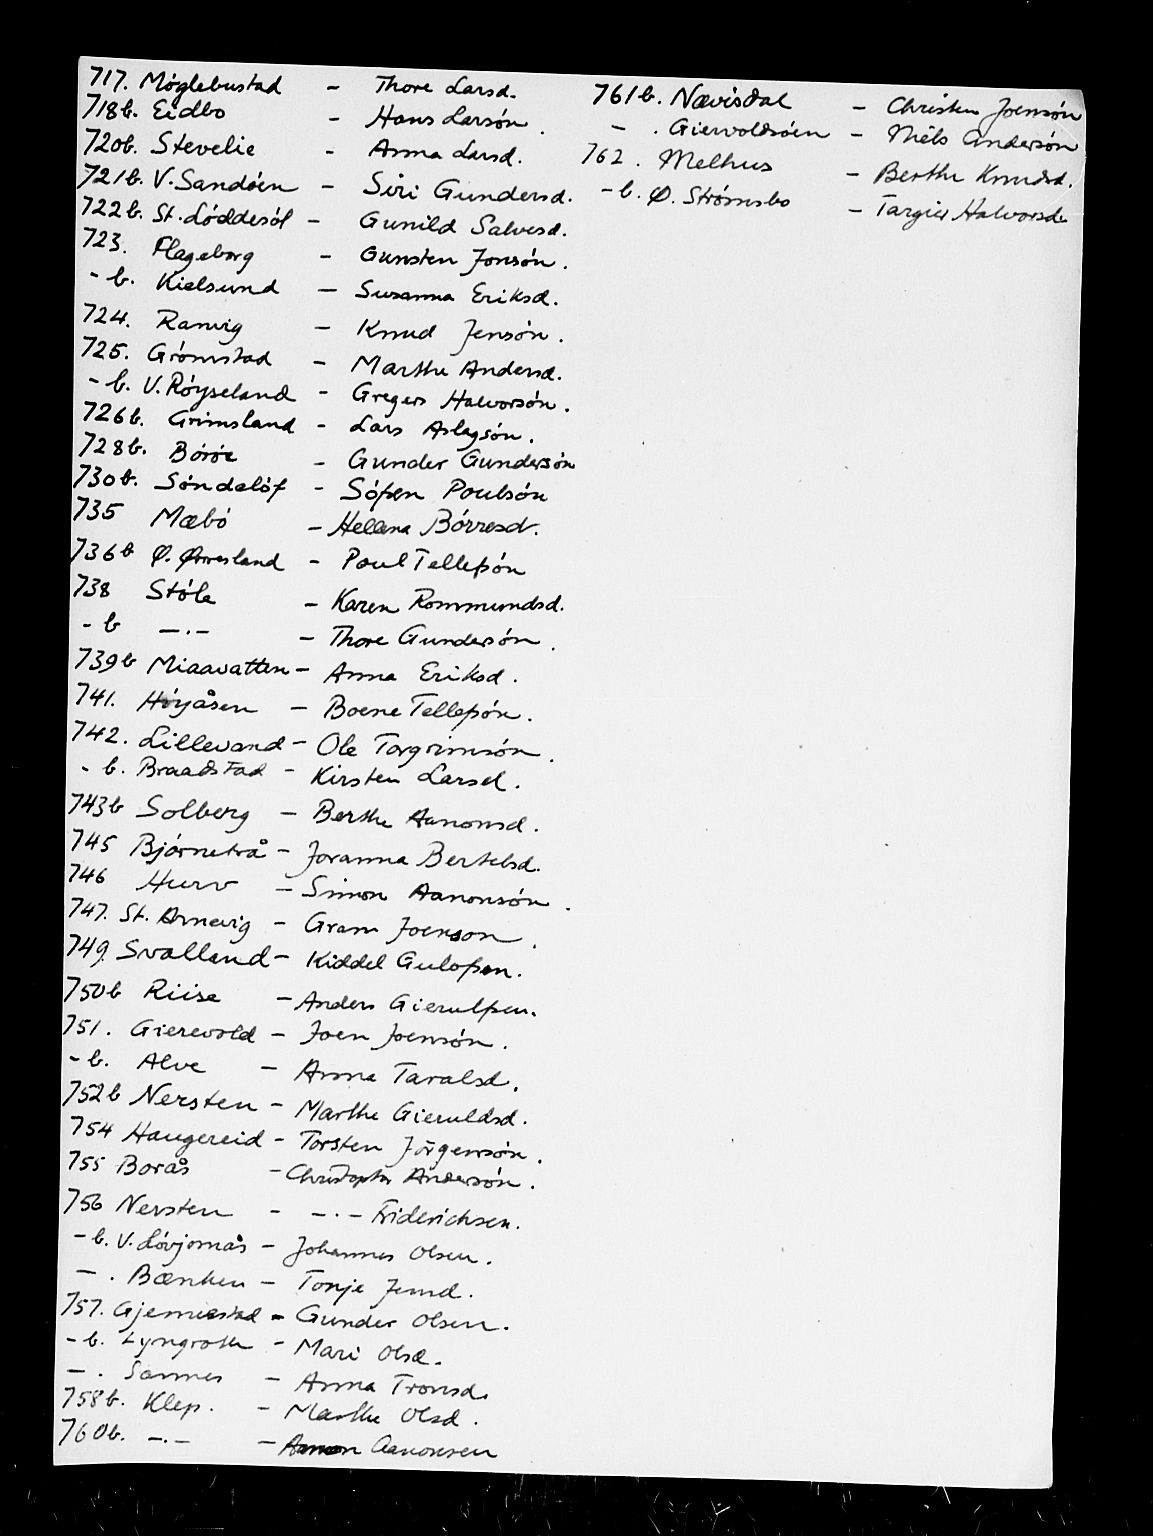 717. Møglebustad - Thore Larsd.
718b. Eidbo - Hans Larsøn.
720b. Stevelie - Anna Larsd.
721b. V. Sandøen - Siri Gundersd.
722b. St. Løddesøl - Gunild Salvesd.
723. Flageborg - Gunsten Jonsøn.
- b. Kielsund - Susanna Eriksd.
724. Ranvig - Knud Jensøn.
725. Grømstad - Marthe Andersd.
- b. V. Røyseland - Gregers Halvorsøn.
726b. Grimsland - Lars Aslagsøn.
728b. Børøe - Gunder Gundersøn
730b. Søndeløf - Søfren Poulsøn
735 Mæbø - Helena Børresd.
736b Ø. Ørresland - Poul Tellefsøn
738 Støle - Karen Rommundsd.
- b -.- - Thore Gundersøn.
739b Miaavatten - Anna Eriksd.
741. Høyåsen - Boene Tellefsøn.
742. Lillevand - Ole Torgrimsøn.
- b. Braadstad - Kirsten Larsd.
743b Solberg - Berthe Aanonsd.
745 Bjørnetrå - Joranna Bertelsd.
746 Hurv - Simon Aanonsøn.
747. St. Arnevig - Gram Joenson.
749. Svalland - Kiddel Gulofsen.
750b Riise - Anders Gierulfsen.
751. Gierevold - Joen Joensøn.
- b. Alve - Anna Taralsd.
752b Nersten - Marthe Gieruldsd.
754 Haugereid - Torsten Jørgensøn.
755 Borås - Christopher Andersøn.
756 Nersten - -.- Friderichsen.
- b. V. Løvjomås - Johannes Olsen.
- . Bænken - Tonje Jensd.
757. Gjemrestad - Gunder Olsen.
- b. Lyngroth - Mari Olsd.
- . Sannes - Anna Tronsd.
758b. Klep. - Marthe Olsd.
760b. -.- - Aanonsen
761b. Nævisdal - Christen Joensøn
- . Giervoldsøen - Niels Andersøn
762. Melhus - Berthe Knudsd.
- b. Ø. Strømsbo - Targier Halvorsd.